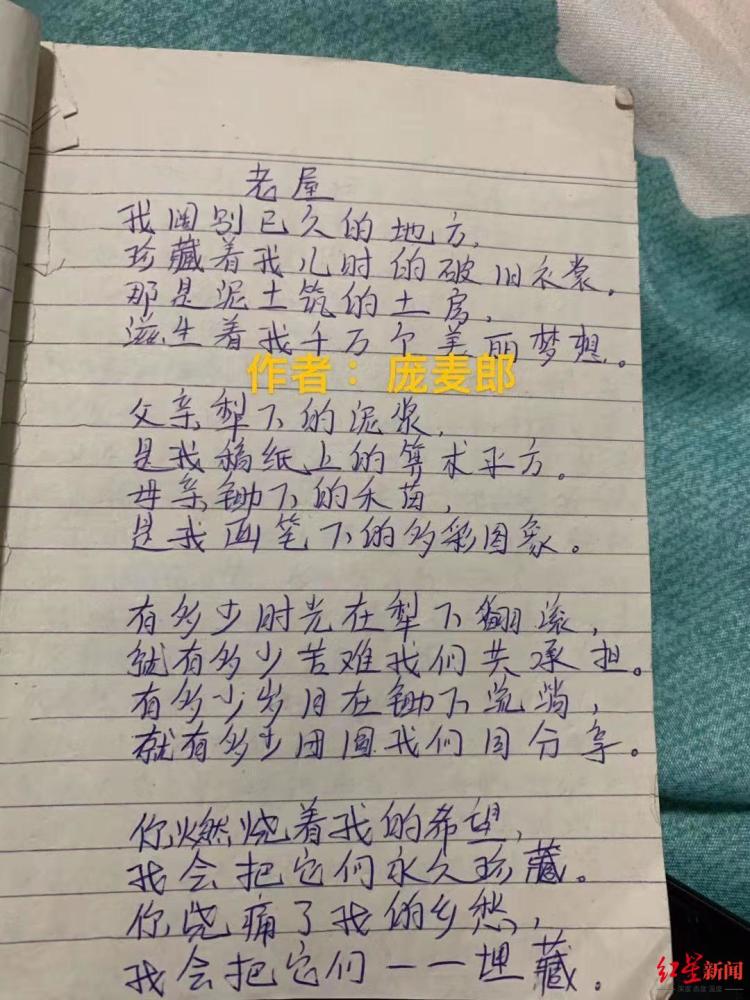 老屋
我阔别已久的地方,
珍藏着我儿时的破旧衣裳。
那是泥土筑的土房,
滋生着我千万个美丽梦想。
作者：庞麦郎
父亲犁下的泥浆,
是我稿纸上的算术平方。
母亲锄下的禾苗,
是我画笔下的多彩图象。
有多少时光在犁下翻滚,
就有多少苦难我们共承担。
有多少岁月在锄下流淌,
就有多少团圆我们同分享。
你燃烧着我的希望,
我会把它们永久珍藏。
你烧痛了我的乡愁,
我会把它们一一埋藏。
红星新闻
深度 态度 温度